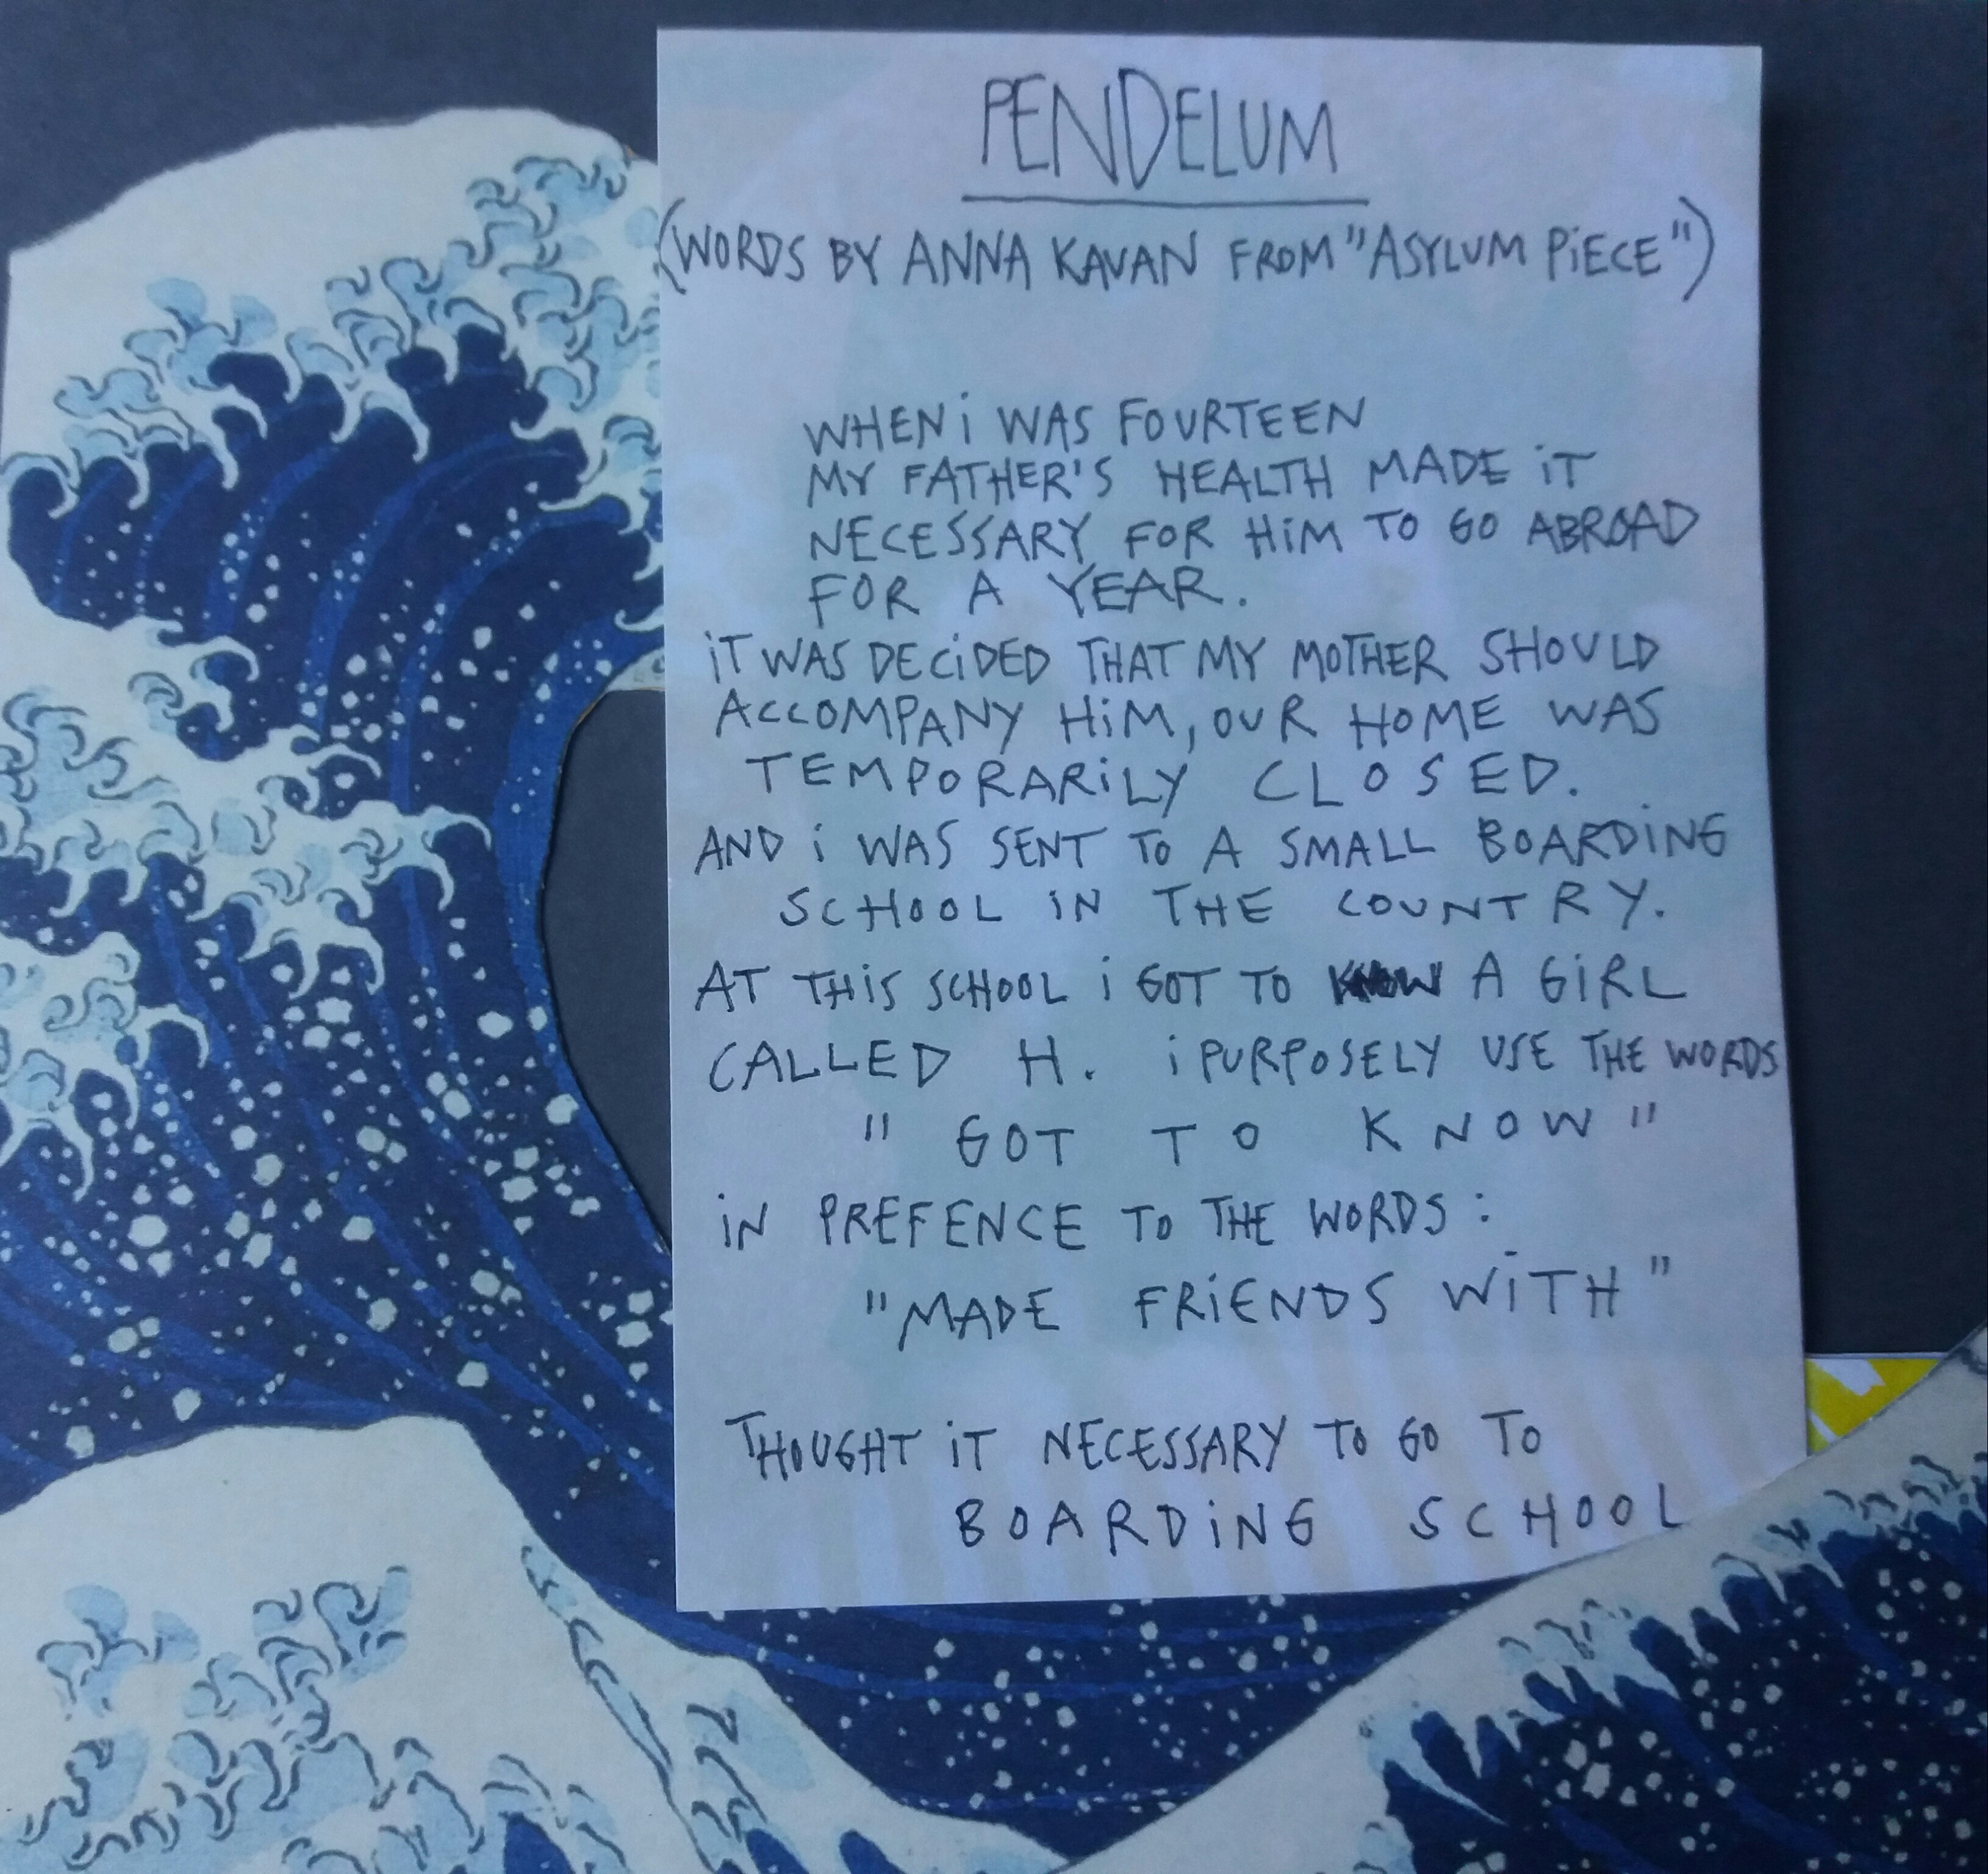 PENDELUM
(WORDS BY ANNA KAVAN FROM "ASYLUM PiECE")
WHEN i WAS FOURTEEN
MY FATHER'S HEALTH MADE iT
NECESSARY FOR HiM TO GO ABROAD
FOR A YEAR.
iT WAS DECiDED THAT MY MOTHER SHOULD
ACCOMPANY HiM, OUR HOME WAS
TEMPORARiLY CLOSED.
AND i WAS SENT TO A SMALL BOARDiNG
SCHOOL iN THE COUNTRY.
AT THiS SCHOOL i GOT TO KNOW A GiRL
CALLED H. i PURPOSELY USE THE WORDS
" GOT TO KNOW "
iN PREFENCE TO THE WORDS :
"MADE FRiENDS WiTH "
THOUGHT iT NECESSARY TO GO TO
BOARDiNG SCHOOL